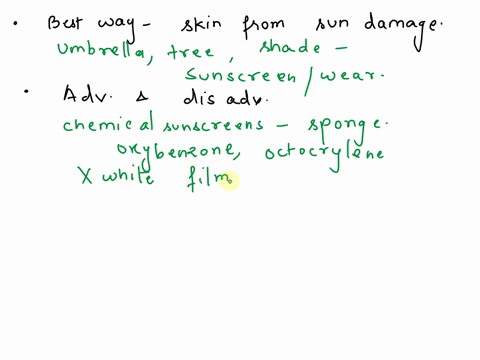 • Best way - skin from sun damage.
umbrella, tree, shade -
sunscreen/wear.
• Adv. & dis adv.
chemical sunscreens - sponge.
oxybenzone, octocrylene
X white film